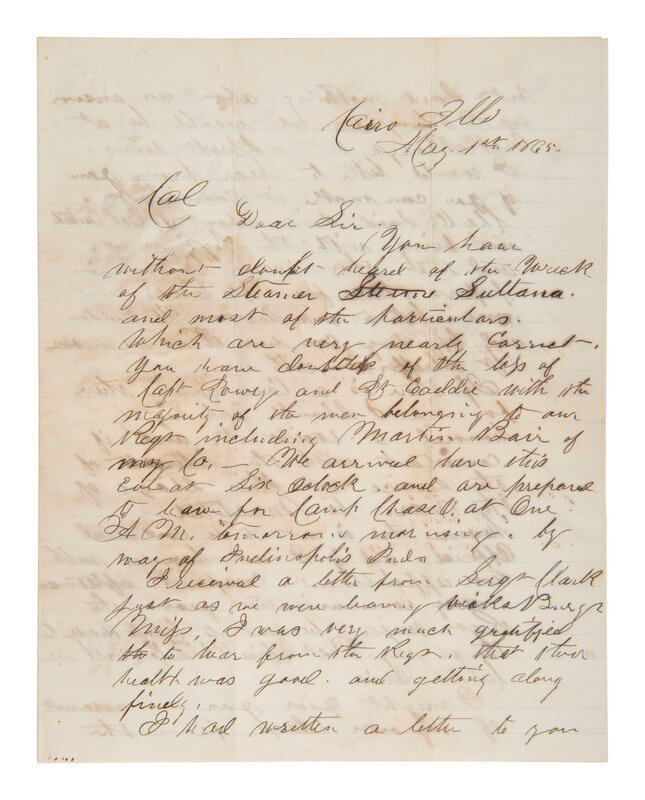 Cairo Ills
May 1st 1865.
Col
Dear Sir.
You have
without doubt heard of the Wreck
of the Steamer Sultana.
and most of the particulars.
Which are very nearly correct.
You have doubts of the loss of
Capt Lowry and Lt Caddie with the
majority of the men belonging to our
Regt including Martin Bair of
my Co. — We arrived here this
Eve at Six Oclock and are prepared
to leave for Camp Chase O. at One
A M. tomorrow morning. by
way of Indinapolis Inda
I received a letter from Sergt Clark
just as we were leaving Vicks Burgh
Miss, I was very much gratified
to hear from the Regt. that their
health was good. and getting along
finely.
I had written a letter to you